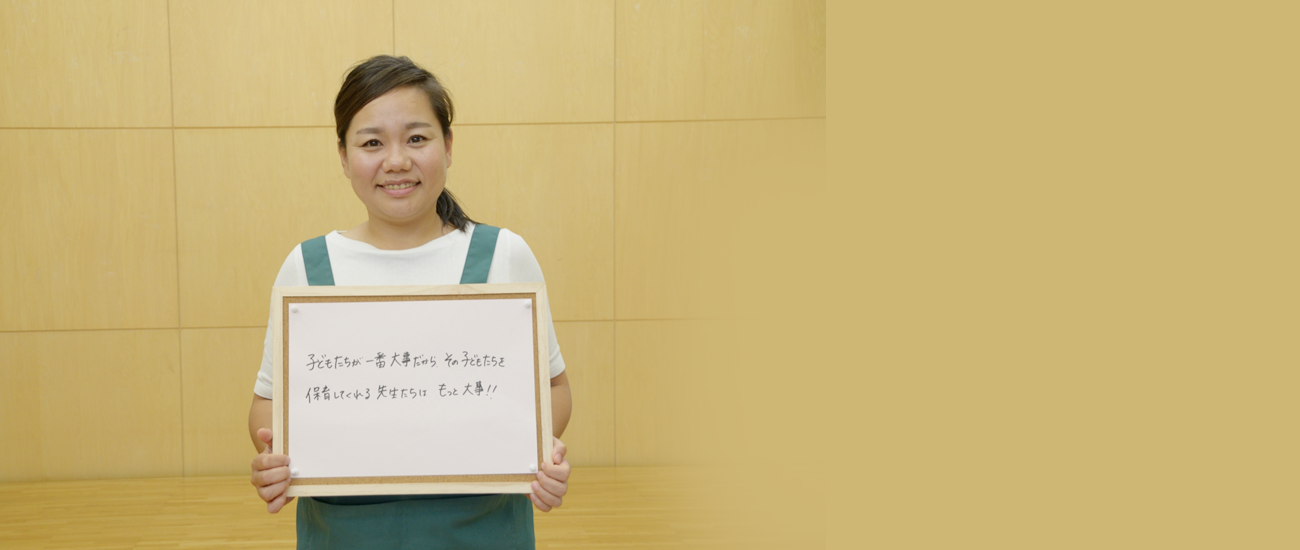 子どもたちが 一番 大事だから その子どもたちを
保育してくれる 先生たちは もっと 大事!!